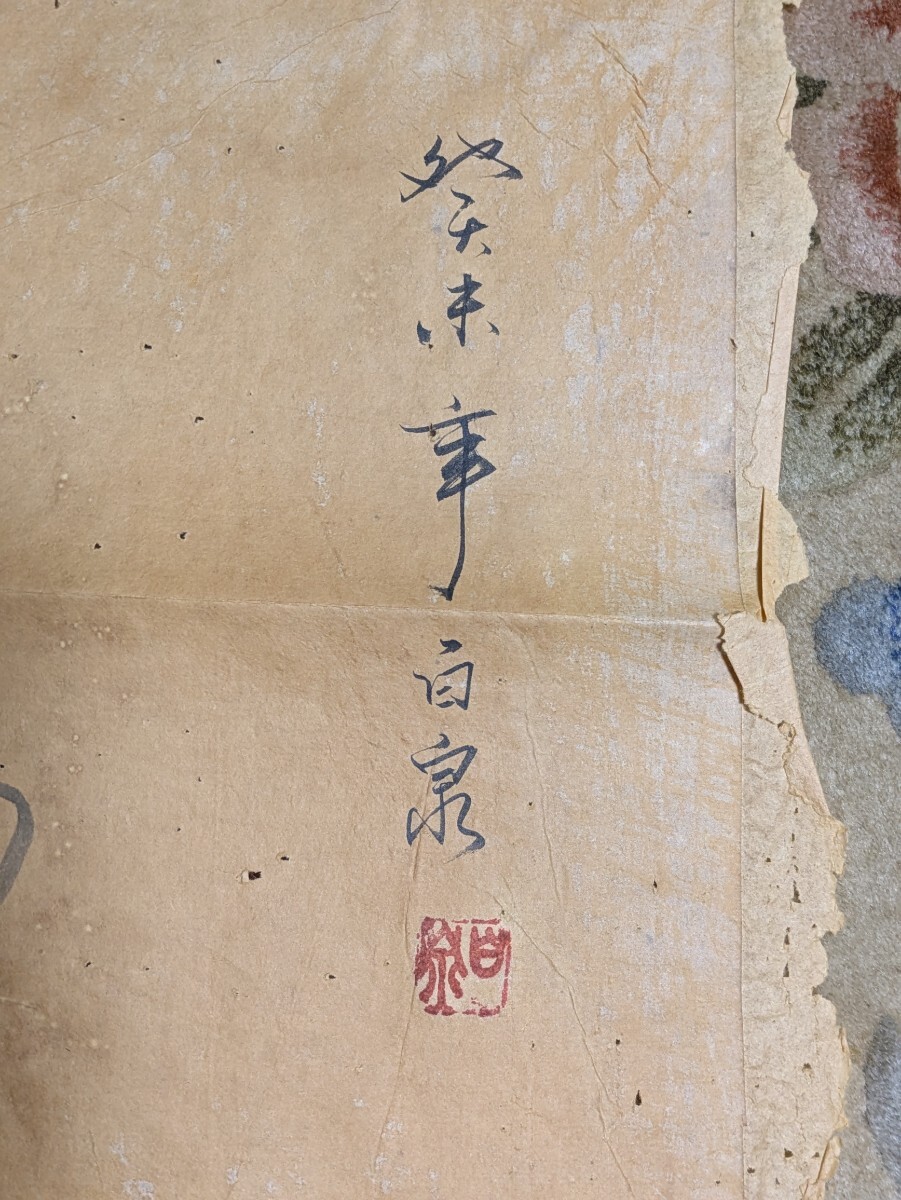 癸未年 白泉
白泉